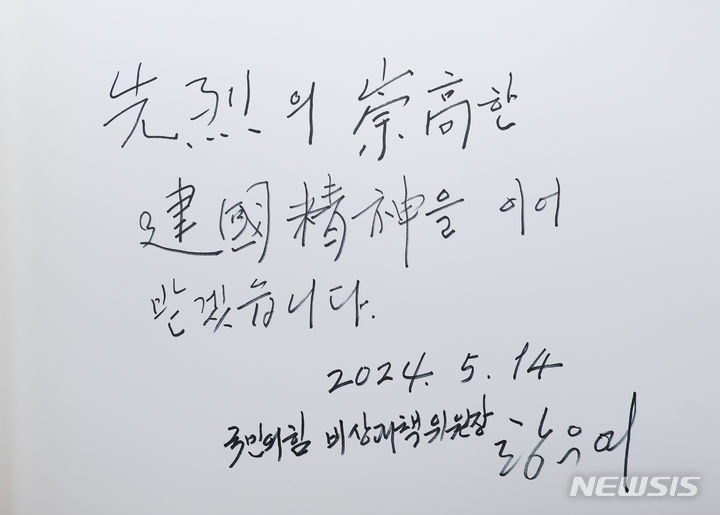 先烈의 崇高한
建國精神을 이어
받겠습니다.
2024. 5. 14
국민의힘 비상대책위원장 황우여
NEWSIS